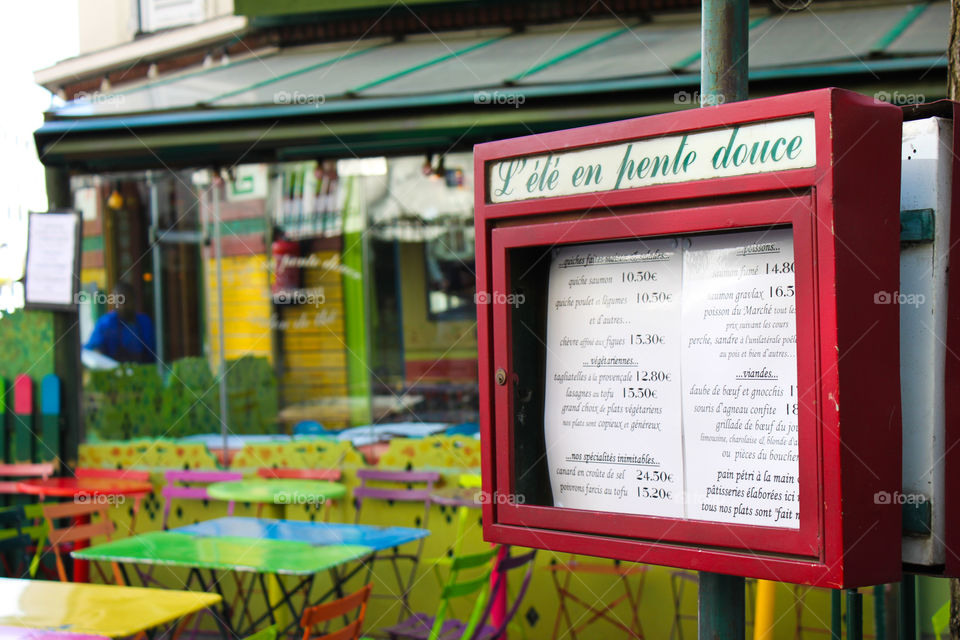 L'été en pente douce
...quiches faites maison & salades...
quiche saumon 10.50€
quiche poulet et légumes 10.50€
et d'autres...
chèvre affiné aux figues 15.30€
...végétariennes...
tagliatelles à la provençale 12.80€
lasagnes au tofu 15.50€
grand choix de plats végétariens
nos plats sont copieux et généreux
...nos spécialités inimitables...
canard en croûte de sel 24.50€
poivrons farcis au tofu 15.20€
...poissons...
saumon fumé 14.80
saumon gravlax 16.5
poisson du Marché tous les
prix suivant les cours
perche, sandre à l'unilatérale poêlé
au pois et bien d'autres...
...viandes...
daube de bœuf et gnocchis 1
souris d'agneau confite 18
grillade de bœuf
limousine, charolaise & blonde d'a
ou pièces du bouche
pain pétri à la main
pâtisserie élaborées ici
tous nos plats sont "fait m
foap
foap
foap
foap
foap
foap
foap
foap
foap
foap
foap
foap